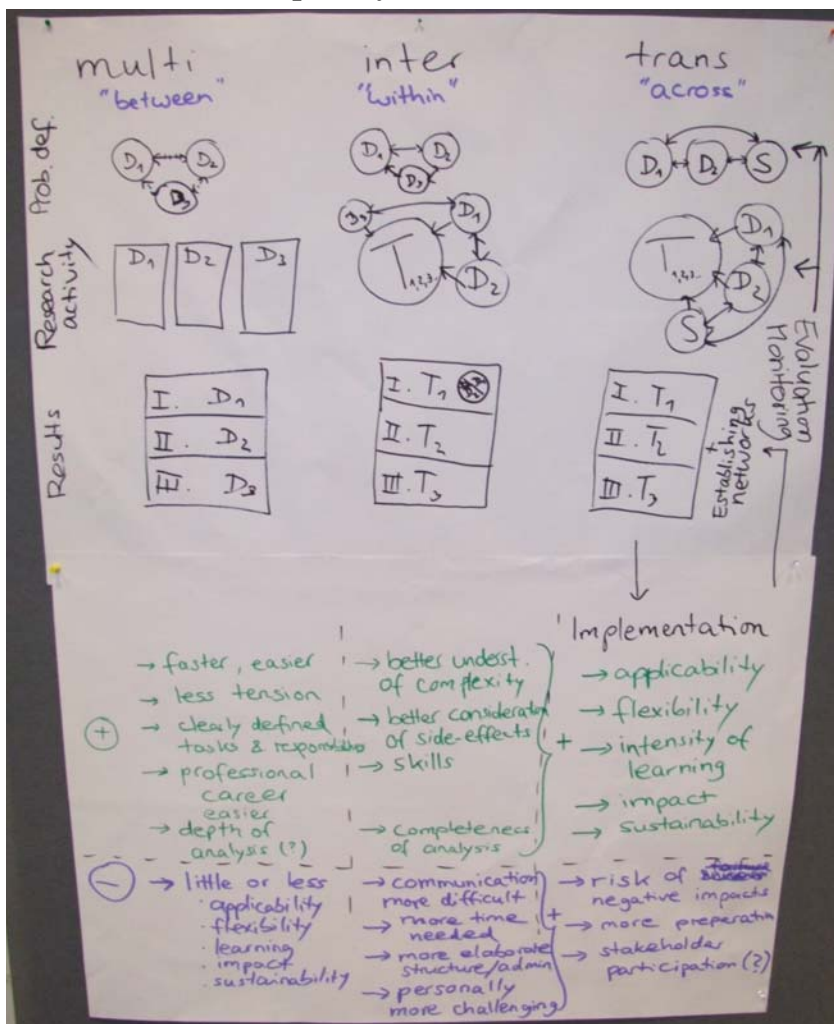 multi
inter
trans
"between"
"within"
"across"
Prob. def.
D1 D2
D3
D1 D2
D3
D1 D2 S
Research
activity
D1 D2 D3
D3 D1
T1,2,3..
D2
D1
T1,2,3..
D2
S
Results
I. D1
II. D2
III. D3
I. T1
II. T2
III. T3
I. T1
II. T2
III. T3
+
Establishing
networks
Evaluation
Monitoring
Implementation
+
→ faster, easier
→ less tension
→ clearly defined
tasks &
→ professional
career
easier
→ depth of
analysis (?)
→ better underst.
of complexity
→ better consideration
of side-effects
→ skills
→ completeness
of analysis
+
→ applicability
→ flexibility
→ intensity of
learning
→ impact
→ sustainability
−
→ little or less
· applicability
· flexibility
· learning
· impact
· sustainability
→ communication
more difficult
→ more time
needed
→ more elaborate
structure/admin
→ personally
more challenging
+
→ risk of
negative impacts
→ more preparation
→ stakeholder
participation (?)